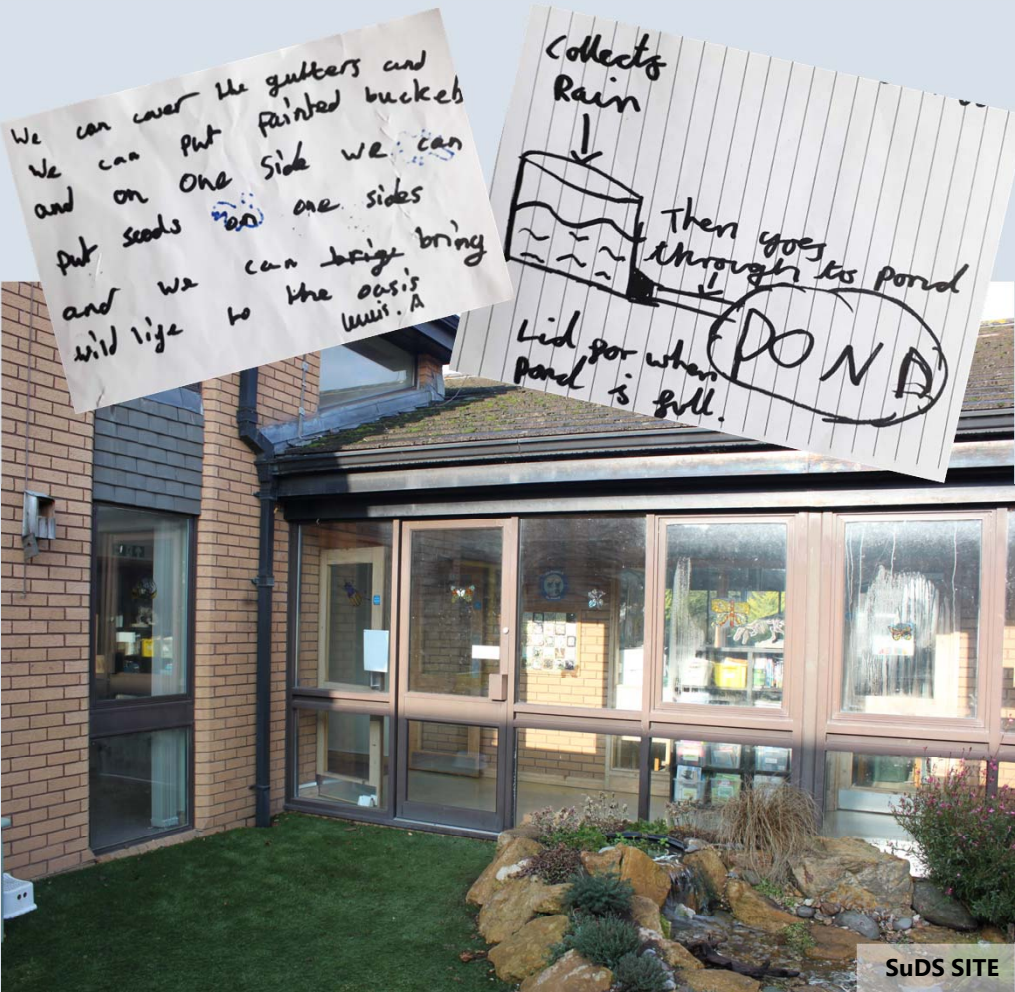 We can cover the gutters and
We can put painted buckets
and on one side we can
put seeds on one sides
and we can brige bring
wild life to the oasis
Muir. A
Collects
Rain
Then goes
through to pond
POND
Lid for when
pond is full.
SuDS SITE